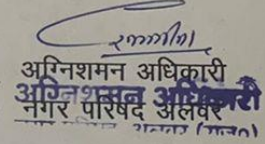 अग्निशमन अधिकारी
अग्निशमन अधिकारी
नगर परिषद अलवर
अलवर (राज०)